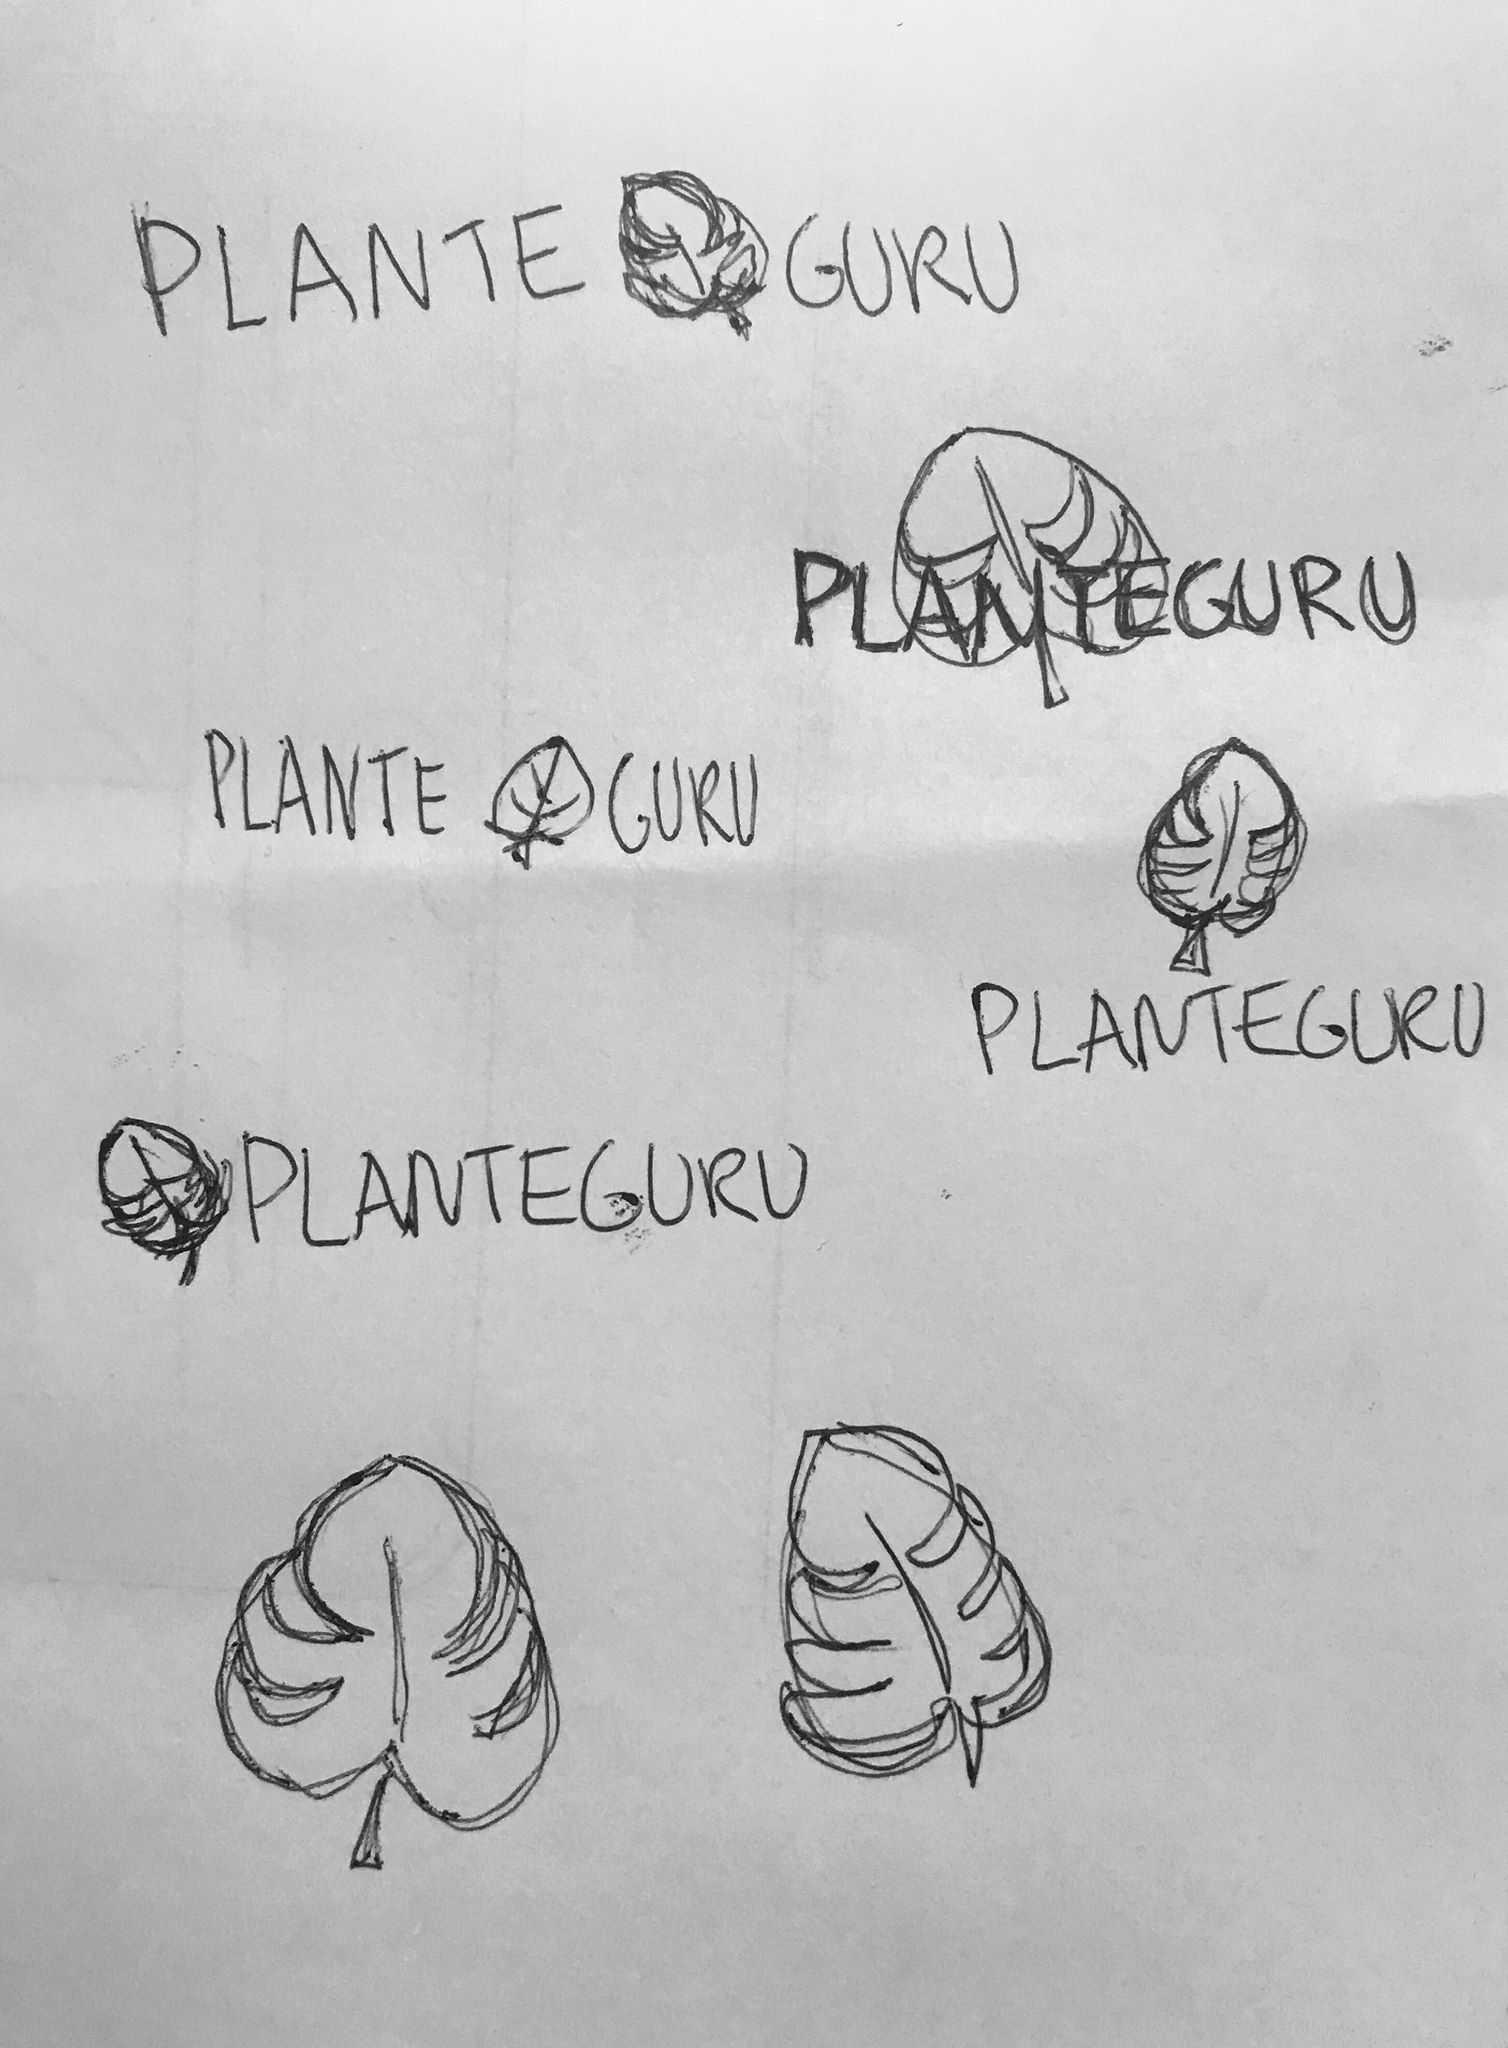 PLANTE GURU
PLANTEGURU
PLANTE GURU
PLANTEGURU
PLANTEGURU